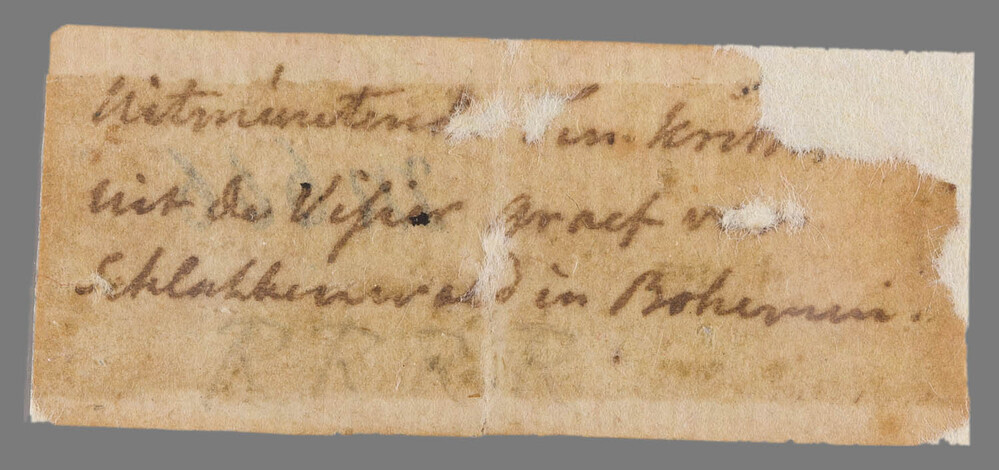 Uitmuntend tin kris
uit de Visier graef v
Schlakkenwald in Bohemin.
RRRR